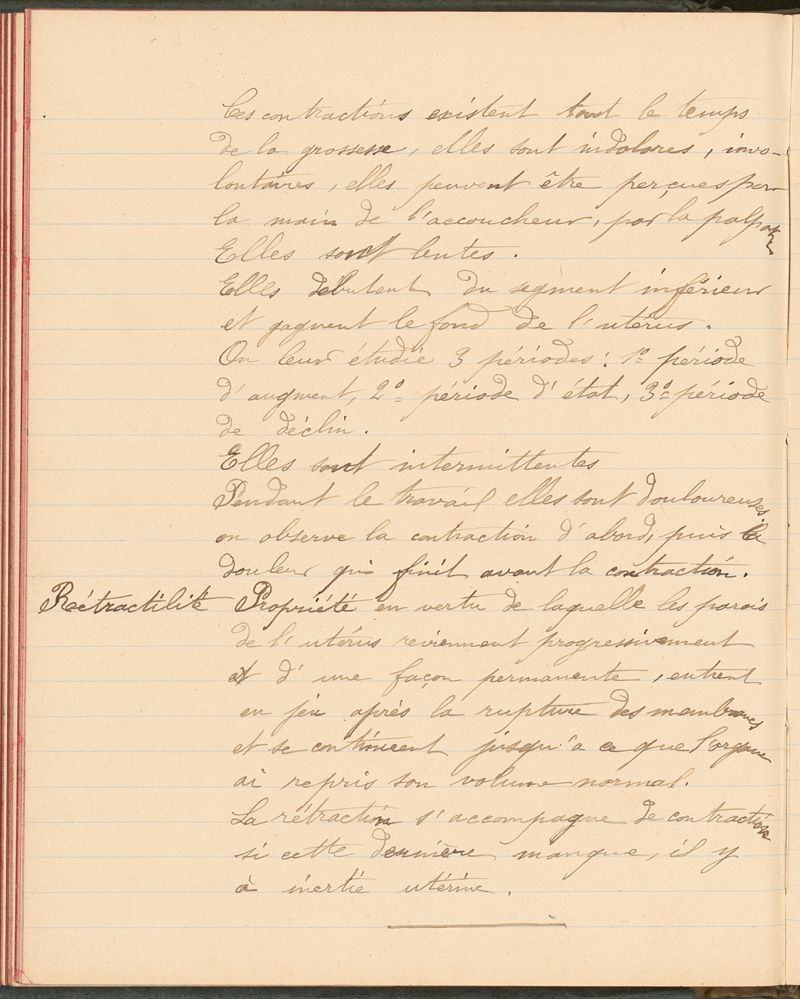 Ces contractions existent tout le temps
de la grossesse, elles sont indolores, invo-
lontaires, elles peuvent être perçues par
la main de l'accoucheur, par la palpat
Elles sont lentes.
Elles débutent du segment inférieur
et gagnent le fond de l'utérus.
On leur étudie 3 périodes : 1º période
d'augment, 2º période d'état, 3º période
de déclin.
Elles sont intermittentes
Pendant le travail elles sont douloureuses,
on observe la contraction d'abord, puis la
douleur qui finit avant la contraction.
Rétractilité Propriété en vertu de laquelle les parois
de l'utérus reviennent progressivement
et d'une façon permanente, entrent
en jeu après la rupture des membranes
et se continuent jusqu'à ce que l'organe
ai repris son volume normal.
La rétraction s'accompagne de contraction
si cette dernière manque, il y
à inertie utérine.